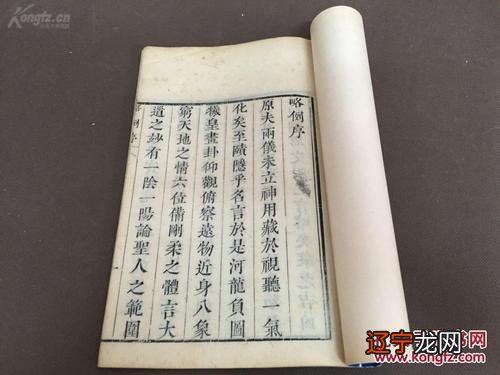 Kongfz.cn
略例序
原夫兩儀未立神用藏於視聽一氣
化矣至賾隱乎名言於是河龍負圖
犧皇畫卦仰觀俯察遠物近身八象
窮天地之情六位備剛柔之體言大
道之妙有一陰一陽論聖人之範圍
辽宁龙网
www.kongfz.com